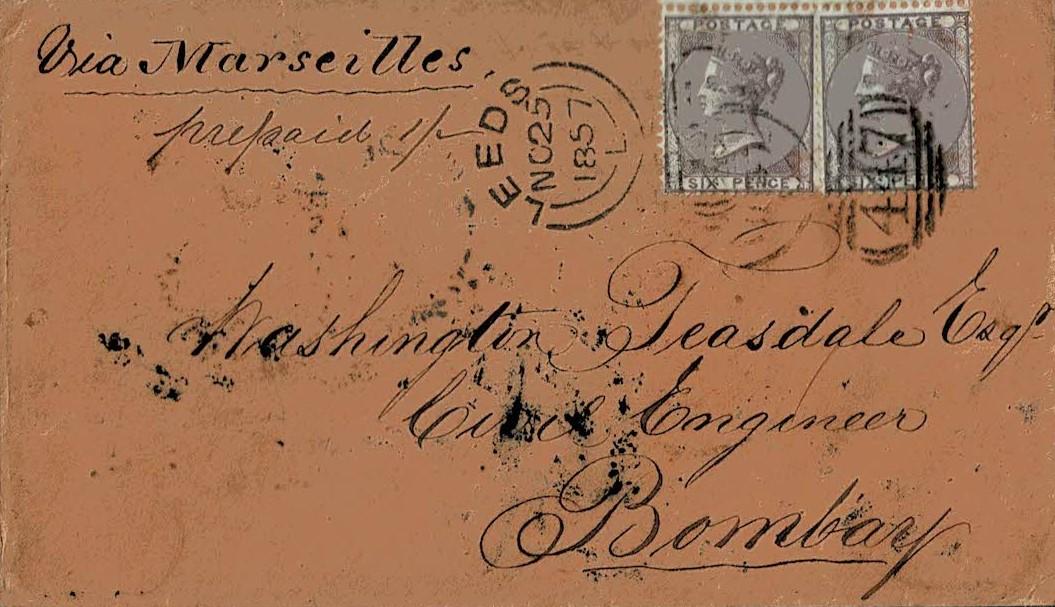 Via Marseilles,
prepaid 1/-
LEEDS
NO 25
1857
L
POSTAGE
SIX PENCE
POSTAGE
SIX PE
447
Washington Teasdale Esqr
Civil Engineer
Bombay